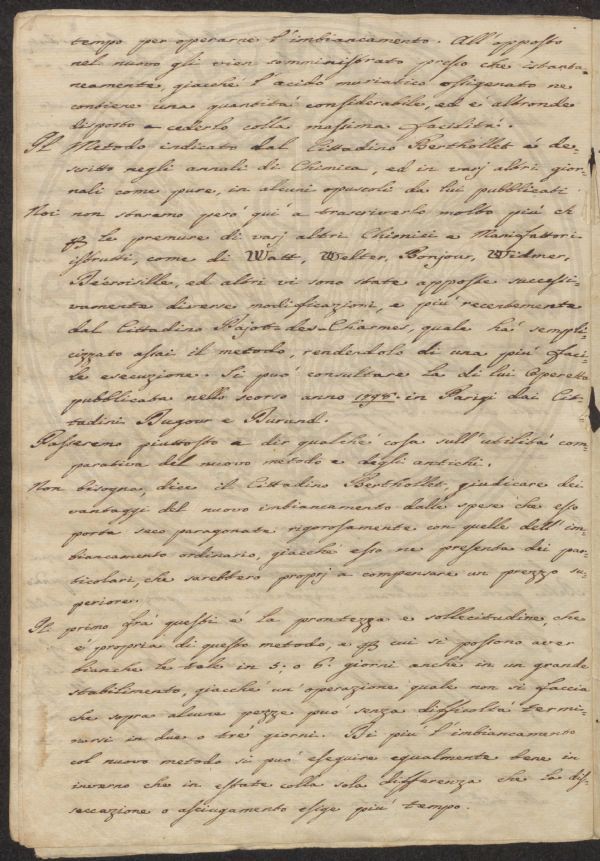 tempo per operarne l'imbiancamento. All'opposto
nel nuovo gli vien somministrato presso che istanta-
neamente, giacchè l'acido muriatico ossigenato ne
contiene una quantità considerabile, ed è altronde
disposto a cederlo colla massima facilità.
Il Metodo indicato dal Cittadino Berthollet è de-
scritto negli annali di Chimica, ed in varj altri gior-
nali come pure, in alcuni opuscoli da lui pubblicati
Noi non staremo però qui a trascriverlo molto più ch
le premure di varj altri Chimici e Manifattori
istrutti, come di Watt, Welter, Bonjour, Widmer,
Décroisille, ed altri vi sono state apposte successi-
vamente diverse modificazioni, e più recentemente
dal Cittadino Pajot-des-Charmes, quale hà sempli-
cizzato assai il metodo, rendendolo di una più faci-
le esecuzione. Si può consultare la di lui Operetta
pubblicata nello scorso anno 1798. in Parigi dai Cit-
tadini Dugour e Durand.
Passeremo piuttosto a dir qualche cosa sull'utilità com-
parativa del nuovo metodo e degli antichi.
Non bisogna, dice il Cittadino Berthollet, giudicare dei
vantaggi del nuovo imbiancamento dalle spese che esso
porta seco paragonate rigorosamente con quelle dell'im-
biancamento ordinario, giacchè esso ne presenta dei par-
ticolari, che sarebbero proprj a compensare un prezzo su-
periore.
Il primo frà questi è la prontezza e sollecitudine che
è propria di questo metodo, e cui si possono aver
bianche le tele in 5. o 6. giorni anche in un grande
stabilimento, giacchè un'operazione quale non si faccia
che sopra alcune pezze può senza difficoltà termi-
narsi in due o tre giorni. Di più l'imbiancamento
col nuovo metodo si può eseguire egualmente bene in
inverno che in estate colla sola differenza che la dis-
seccazione o asciugamento esige più tempo.